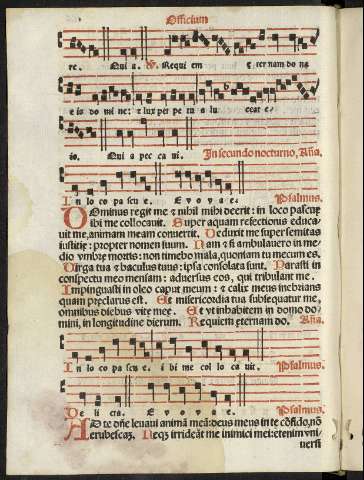 Officium
re. Quia. V. Requiem eternam dona
eis domine: et lux perpetua luceat e
is. Quia peccavi. In secundo nocturno, Aña.
In loco pascue. Evovae. Psalmus.
DOminus regit me et nihil mihi deerit: in loco pascue
ibi me collocavit. Super aquam refectionis educa
vit me, animam meam convertit. Deduxit me super semitas
iusticie: propter nomen suum. Nam et si ambulavero in me
dio umbre mortis: non timebo mala, quoniam tu mecum es.
Virga tua et baculus tuus: ipsa consolata sunt. Parasti in
conspectu meo mensam: adversus eos, qui tribulant me.
Impinguasti in oleo caput meum: et calix meus inebrians
quam preclarus est. Et misericordia tua subsequatur me,
omnibus diebus vite mee. Et ut inhabitem in domo do
mini, in longitudine dierum. Requiem eternam do. Aña.
In loco pascue. ibi me collocavit. Psalmus.
Delicta. Evovae. Psalmus.
AD te dñe levavi animã meã: deus meus in te cõfido, nõ
erubescaʒ. Neqʒ irrideãt me inimici mei: etenim vni
versi